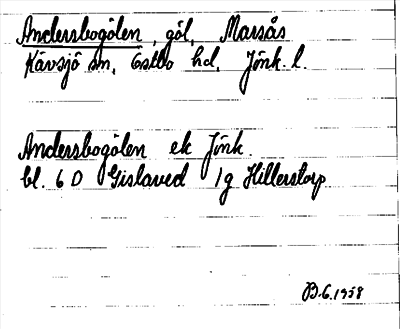 Andersbogölen, göl, Marsås
Kävsjö sn, Östbo hd, Jönk. l.
Andersbogölen ek Jönk
bl. 6 D Gislaved 1g Hillerstorp
B.6.1958